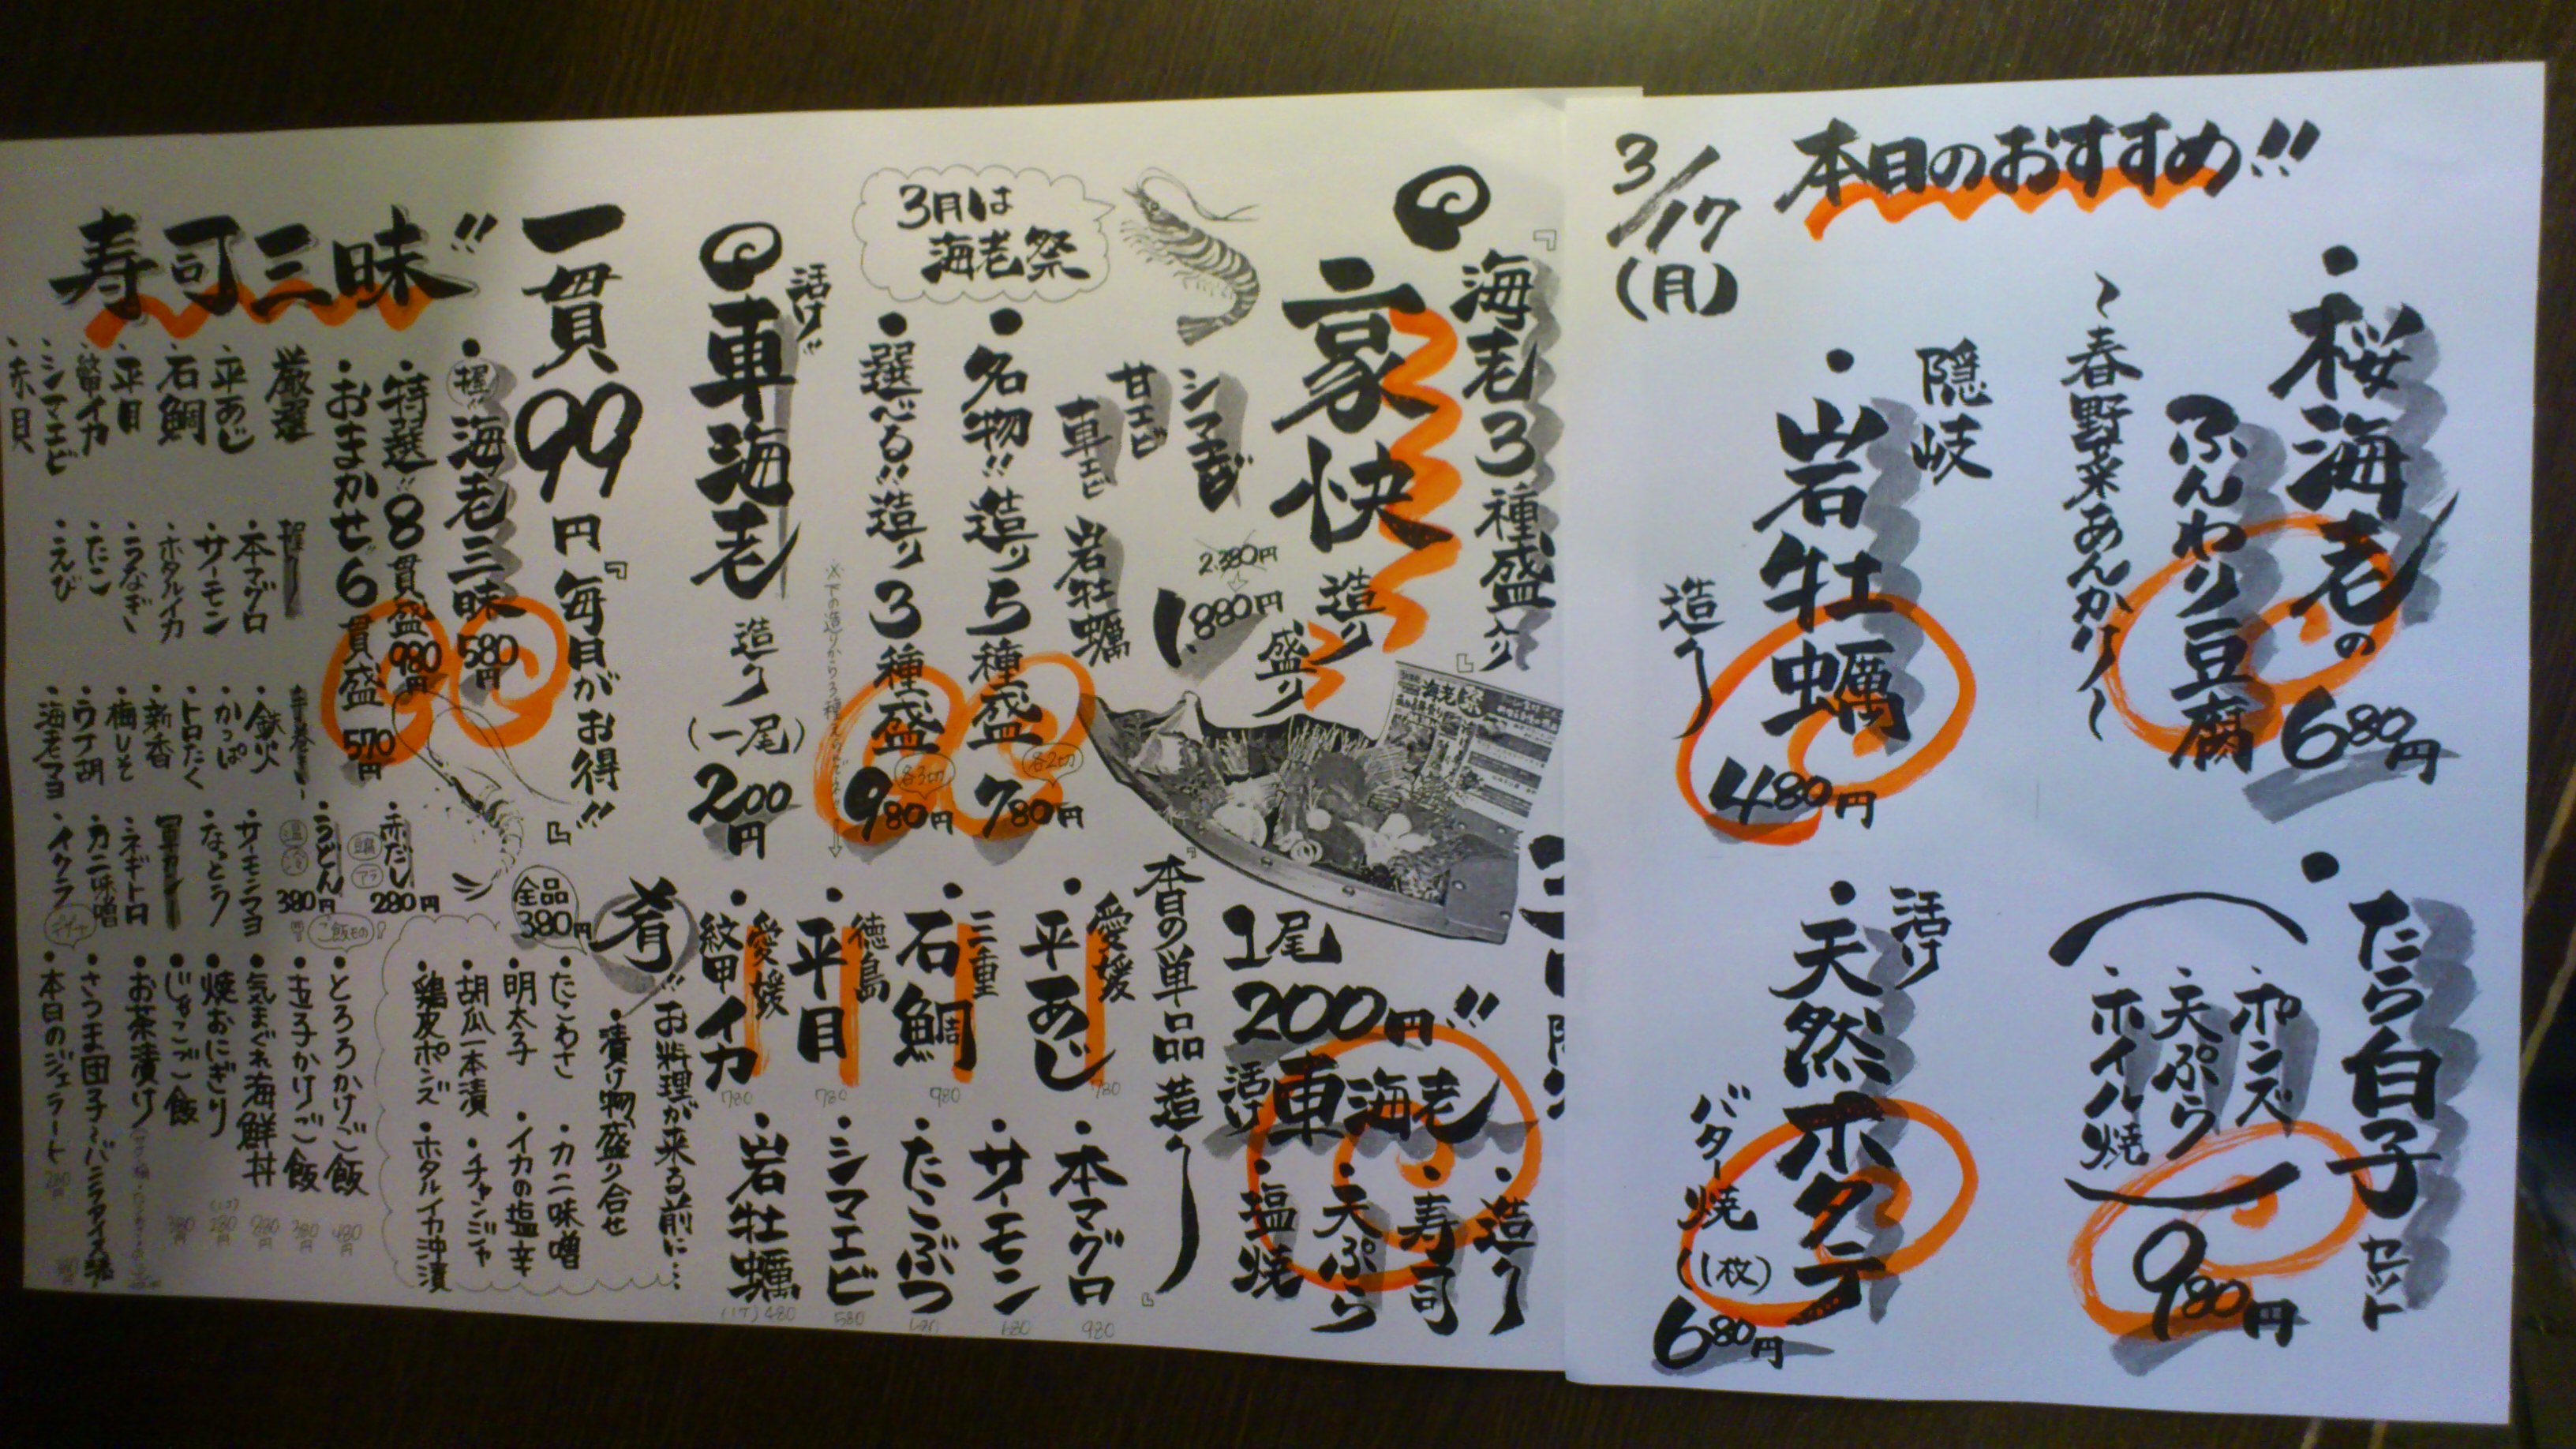 本日のおすすめ!!
3/17(月)
・桜海老の
ふんわり豆腐
〜春野菜あんかけ〜
680円
隠岐
・岩牡蠣
造り
480円
・たら白子セット
・ポンズ
・天ぷら
・ホイル焼
980円
活け
・天然ホタテ
バター焼
(1枚)
680円
『海老3種盛り』
豪快
造り
盛り
2.380円
1.880円
シマエビ
甘エビ
車エビ
岩牡蠣
3月は
海老祭
・名物!!造り5種盛
各2切
780円
・選べる!!造り3種盛
各3切
980円
活け!!
車海老
造り
(一尾)
200円
1尾
200円!!
活け車海老
・造り
・寿司
・天ぷら
・塩焼
『本日の単品造り』
愛媛
・平あじ
780
三重
・石鯛
980
徳島
・平目
780
愛媛
・紋甲イカ
780
・本マグロ
980
・サーモン
680
・たこぶつ
・シマエビ
580
・岩牡蠣
480
一貫99円『毎日がお得!!』
肴!!お料理が来る前に…
全品
380円
・漬け物盛り合せ
・たこわさ
・カニ味噌
・明太子
・イカの塩辛
・胡瓜一本漬
・チャンジャ
・鶏皮ポンズ
・ホタルイカ沖漬
寿司三昧!!
・握!!海老三昧
580円
・特選!!8貫盛
980円
・おまかせ!!6貫盛
570円
厳選
・平あじ
・石鯛
・平目
・紋甲イカ
・シマエビ
・赤貝
握り
・本マグロ
・サーモン
・ホタルイカ
・うなぎ
・たこ
・えび
手巻き
・鉄火
・かっぱ
・トロたく
・新香
・梅しそ
・ウナ胡
・海老マヨ
・サーモンマヨ
・なっとう
軍カン
・ネギトロ
・カニ味噌
・イクラ
・赤だし
アラ
280円
・うどん
温
冷
380円
ご飯もの
・とろろかけご飯
480円
・玉子かけご飯
380円
・気まぐれ海鮮丼
880円
・焼おにぎり
280円
・じゃこご飯
380円
・お茶漬け
デザート
・さつま団子〜バニラアイス添
・本日のジェラート
280円